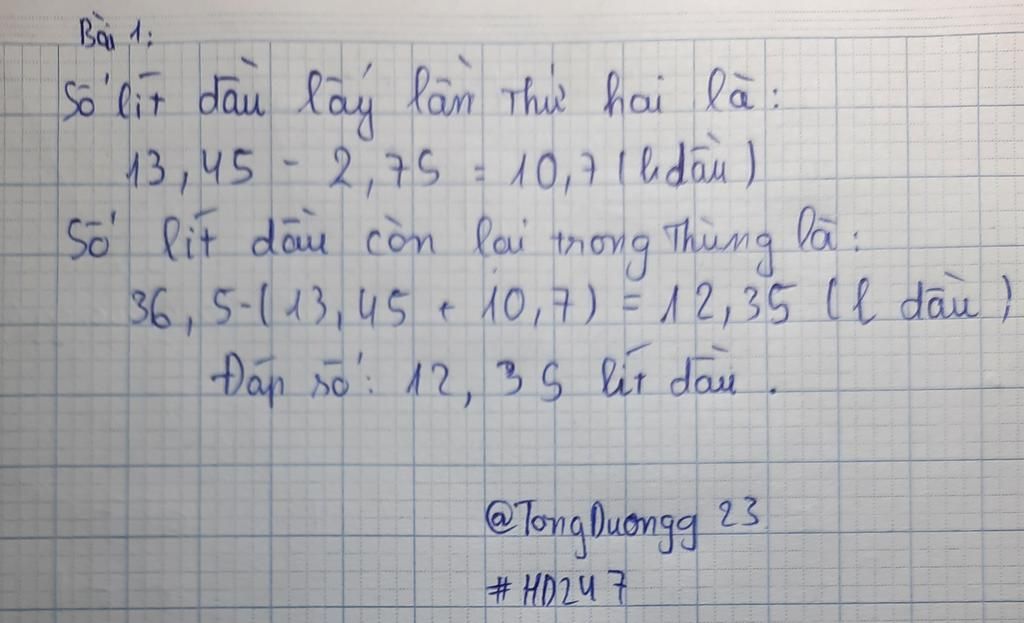 Bài 1:
Số lít dầu lấy lần thứ hai là:
13,45 - 2,75 = 10,7 (l dầu)
Số lít dầu còn lại trong thùng là:
36,5-(13,45 + 10,7) = 12,35 (l dầu)
Đáp số: 12,35 lít dầu.
@TongDuongg 23
#HD247